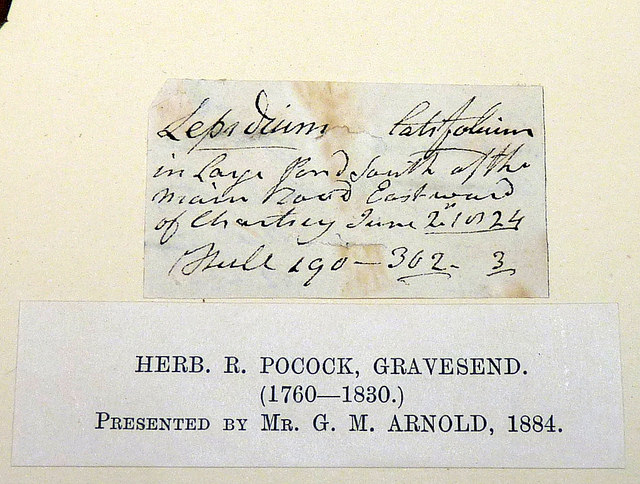 Lepidium latifolium
in Large Pond South of the
main road Eastward
of Chertsey June 1824
Hull 190 — 302 - 3
HERB. R. POCOCK, GRAVESEND.
(1760—1830.)
PRESENTED BY MR. G. M. ARNOLD, 1884.